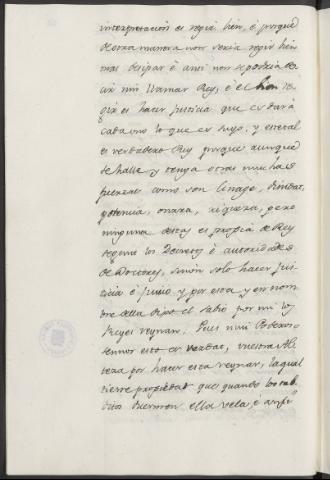 interpretacion es regir bien, é porque
de otra manera non seria regir bien
mas disipar é ansi non se podria de-
cir nin llamar Rey, é el bien re-
gir es hacer Justicia que es dar á
cada uno lo que es suyo, y este tal
es verdadero Rey porque aunque
se halle y tenga otras muchas
fuerzas como son linage, dinidat,
potencia, onrra, riqueza, pero
ninguna destas es propia de Rey
segunt los Decretos é autoridades
de Doctores, sinon solo hacer Jus-
ticia é Juicio y por esta y en nom-
bre della dijo el Sabio por mi los
Reyes reynan. Pues mui Poderoso
Sennor esto es verdat, vuestra Al-
teza por hacer esta reynar, la qual
tiene propiedat que quando los sub-
ditos duermen ella vela, é assi